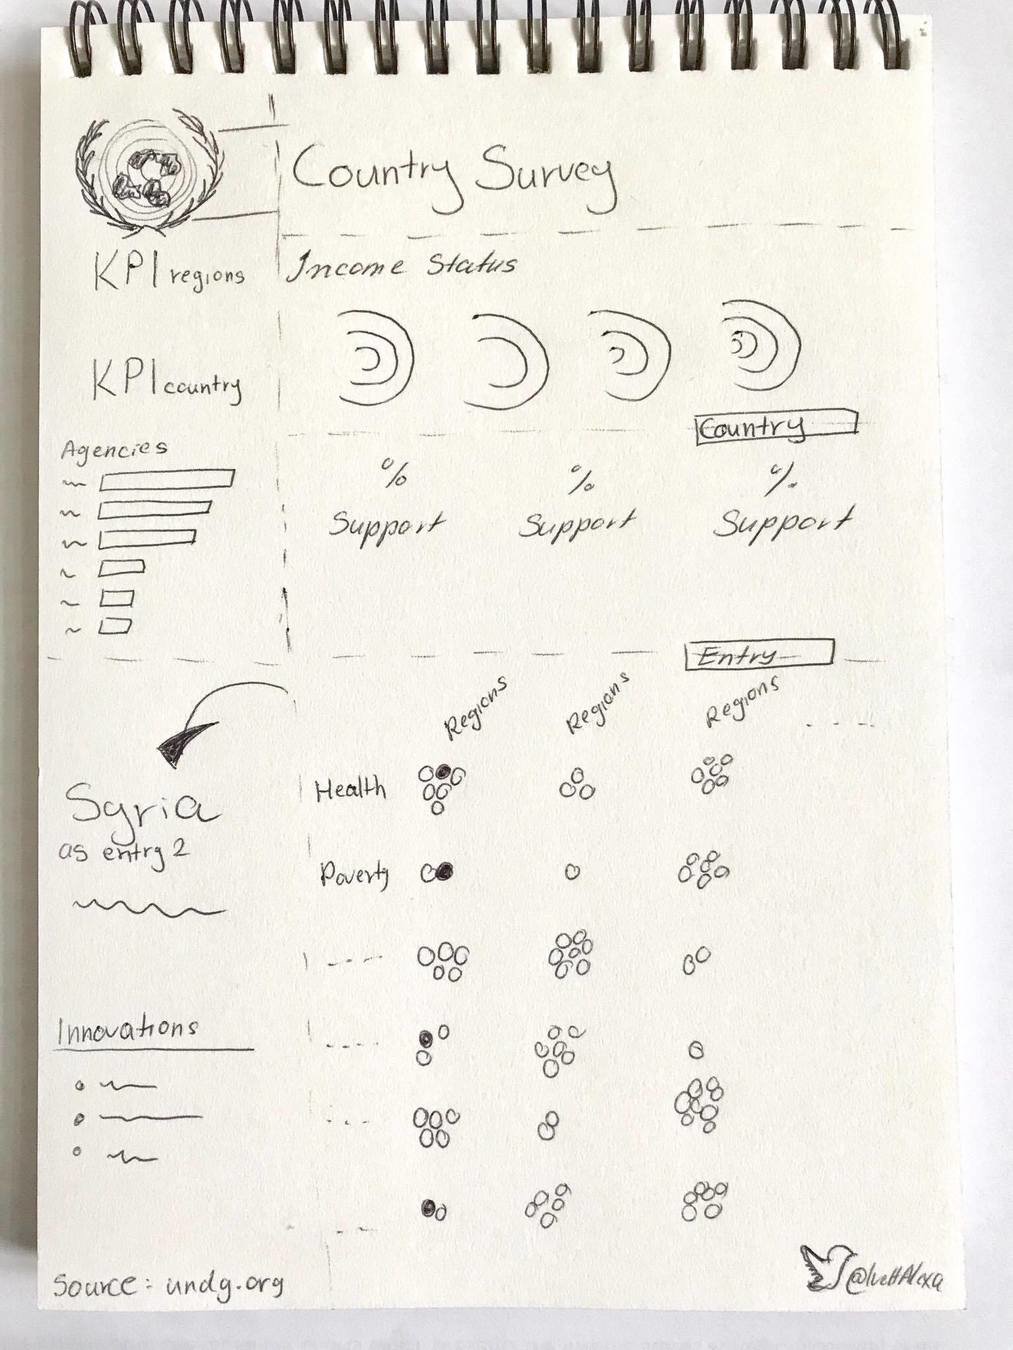 Country Survey
KPI regions
Income Status
KPI country
Country
Agencies
% % %
Support Support Support
Entry
Regions Regions Regions
Health
Syria
as entry 2
Poverty
Innovations
Source: undg.org
@IvettAlexa